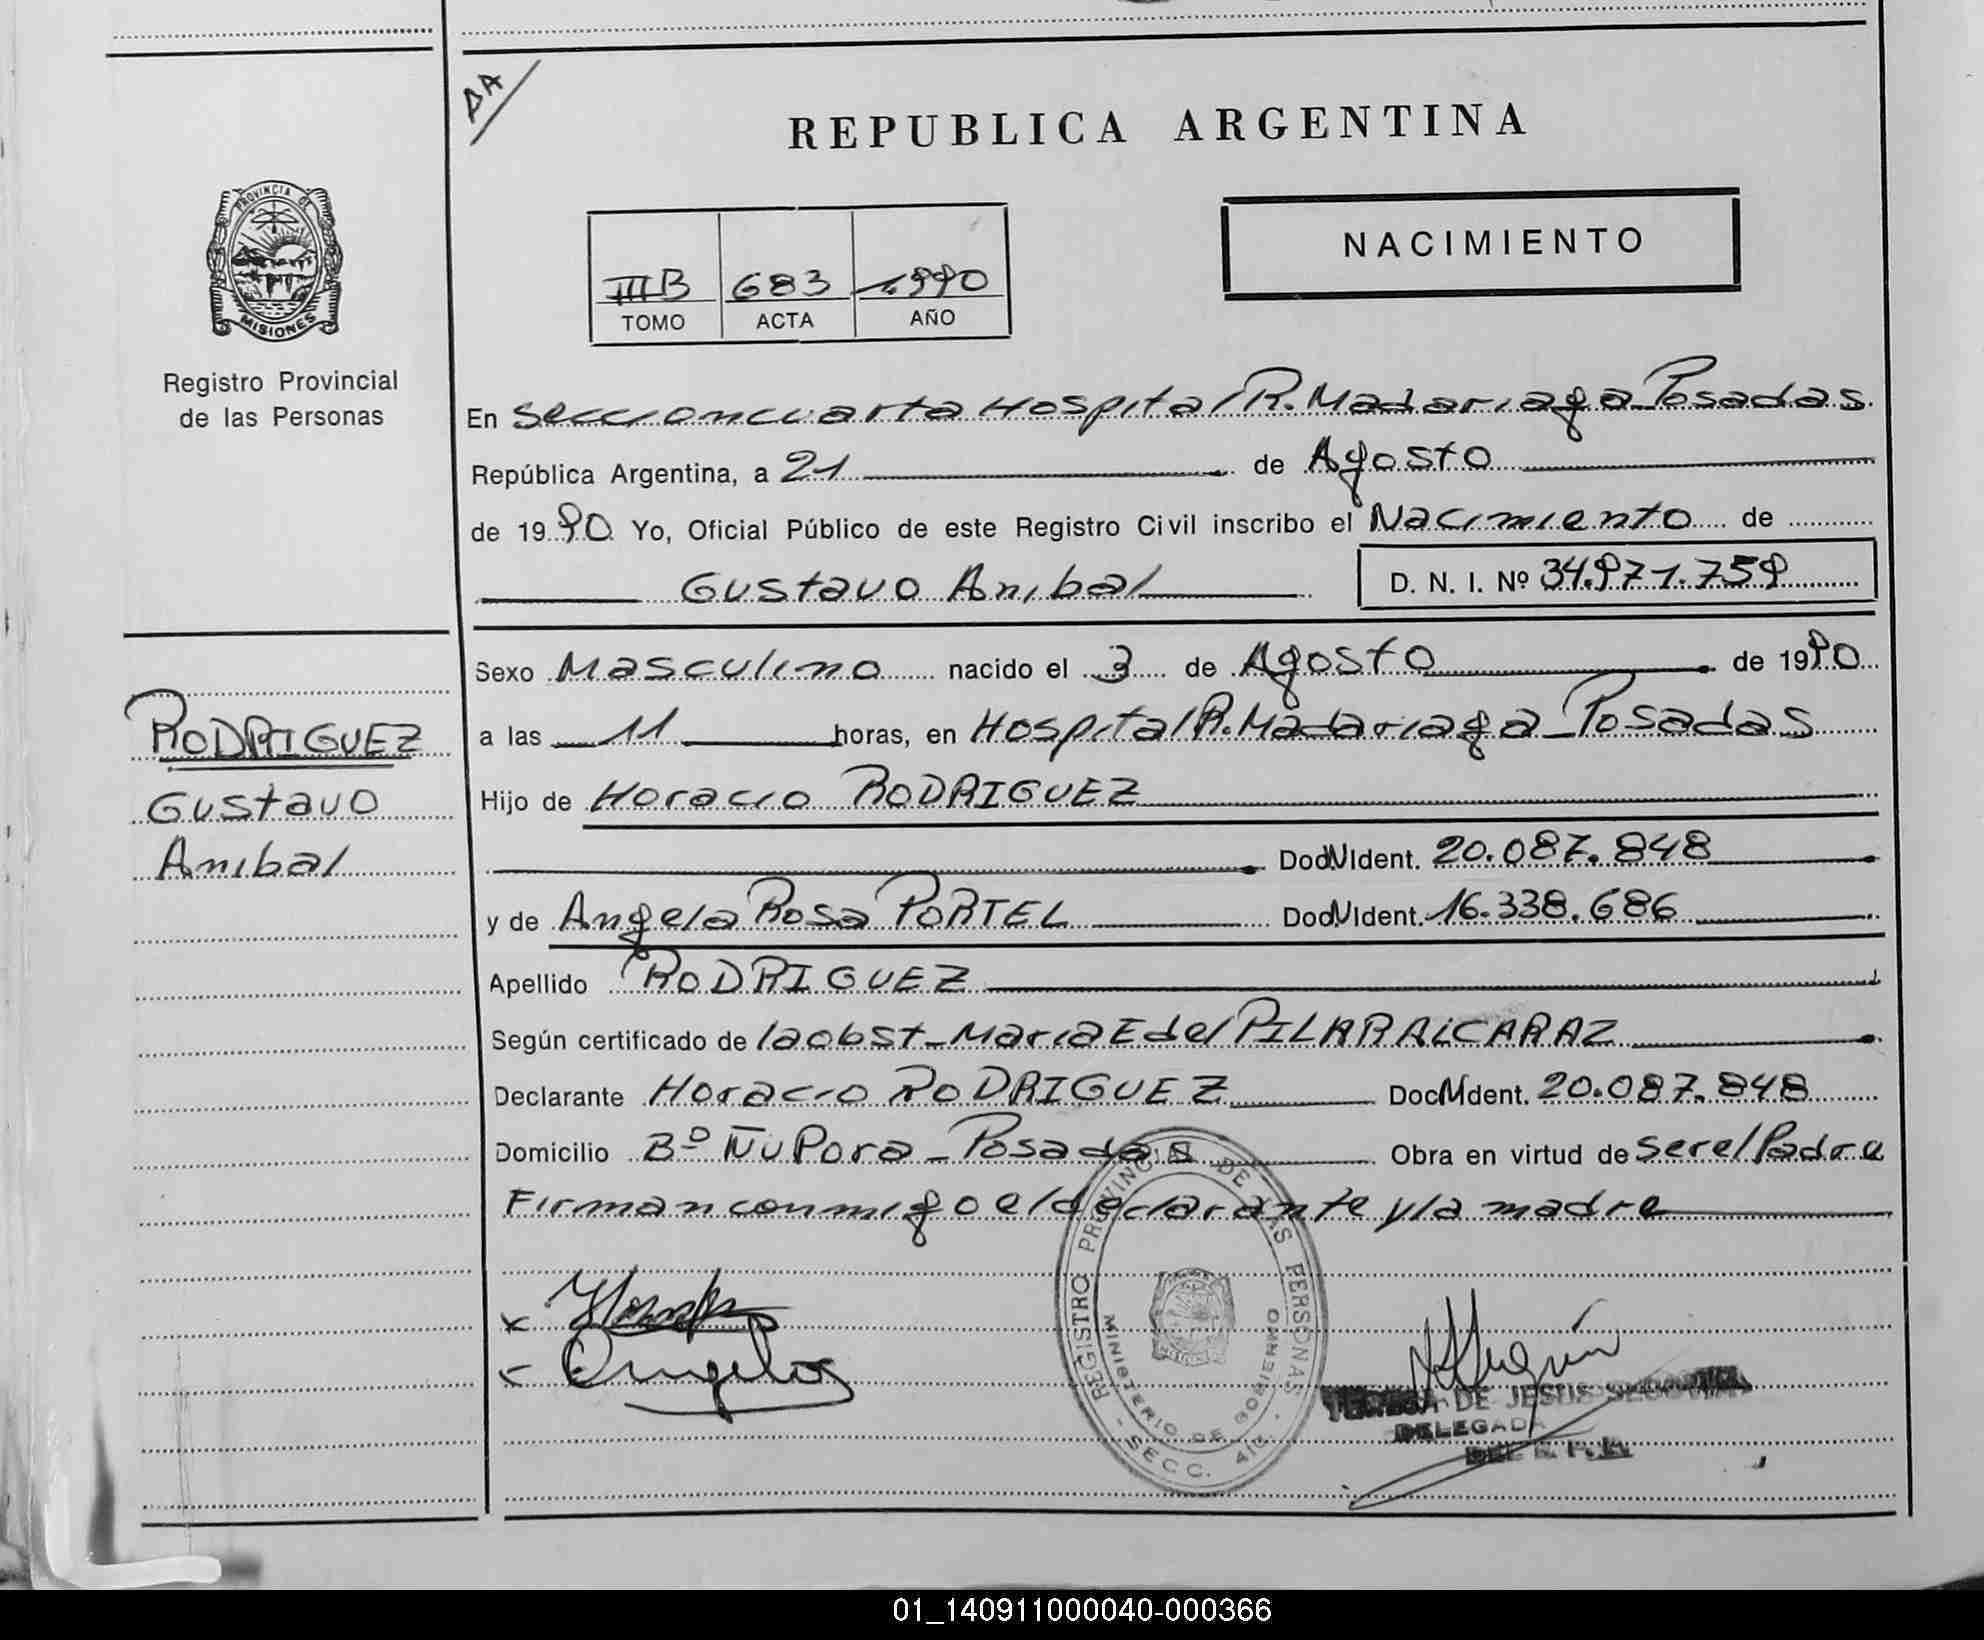 DA/
REPUBLICA ARGENTINA
PROVINCIA DE
MISIONES
Registro Provincial
de las Personas
III B 683 1990
TOMO ACTA AÑO
NACIMIENTO
En Seccion cuarta Hospital R. Madariaga _ Posadas
República Argentina, a 21 de Agosto
de 1990 Yo, Oficial Público de este Registro Civil inscribo el Nacimiento de
Gustavo Anibal D. N. I. Nº 34.971.759
RODRIGUEZ
Gustavo
Anibal
Sexo Masculino nacido el 3 de Agosto de 1990
a las 11 horas, en Hospital R. Madariaga _ Posadas
Hijo de Horacio RODRIGUEZ
Doc.N.Ident. 20.087.848
y de Angela Rosa PORTEL Doc.N.Ident. 16.338.686
Apellido RODRIGUEZ
Según certificado de la obst_ Maria E del PILAR ALCARAZ
Declarante Horacio RODRIGUEZ Doc.N.Ident. 20.087.848
Domicilio Bº ÑuPora _ Posadas Obra en virtud de ser el Padre
Firman conmigo el declarante y la madre
Angela
REGISTRO PROVINCIAL DE LAS PERSONAS
MINISTERIO DE GOBIERNO
- SECC. 4ta. -
TERESA DE JESUS SEGOVIA
DELEGADA
DEL R. P. P.
01_140911000040-000366